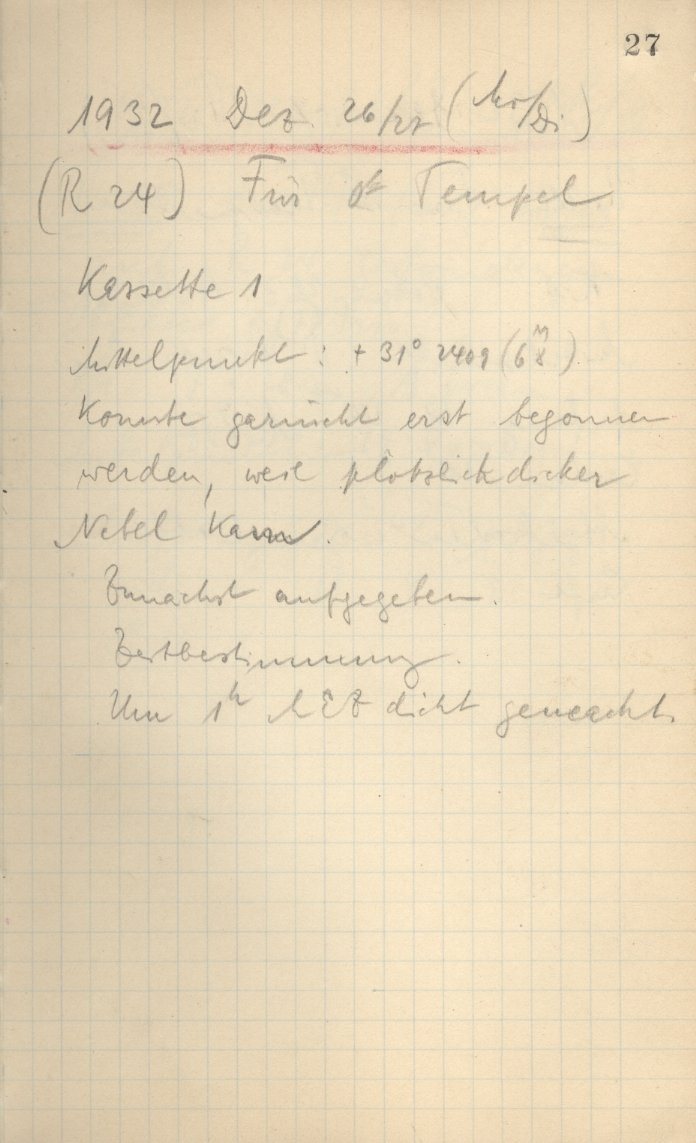 27
1932 Dez. 26/27 (Mo/Di)
(R 24) Für Dr Tempel
Kassette 1
Mittelpunkt: + 31° 2409 (6.8m)
Konnte garnicht erst begonnen
werden, weil plötzlich dicker
Nebel kam.
Zunächst aufgegeben.
Zeitbestimmung.
Um 1h MEZ dicht gemacht.